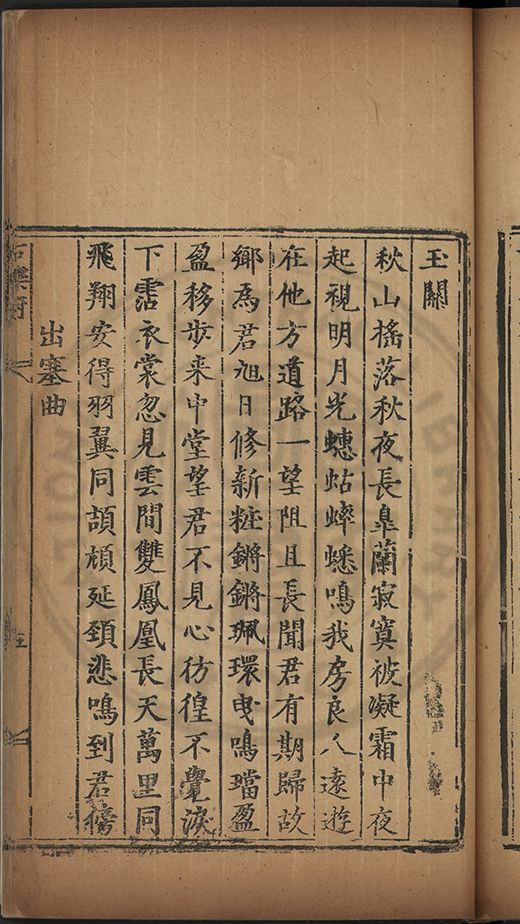 玉關
秋山榣落秋夜長臯蘭寂寞被凝霜中夜
起視明月光蟪蛄蟀蟋鳴我房良人遠遊
在他方道路一望阻且長聞君有期歸故
鄉為君旭日修新粧鏘鏘珮環曳鳴璫盈
盈移步来中堂望君不見心彷徨不覺淚
下霑衣裳忽見雲間雙鳳凰長天萬里同
飛翔安得羽翼同頡頏延頸悲鳴到君傍
出塞曲